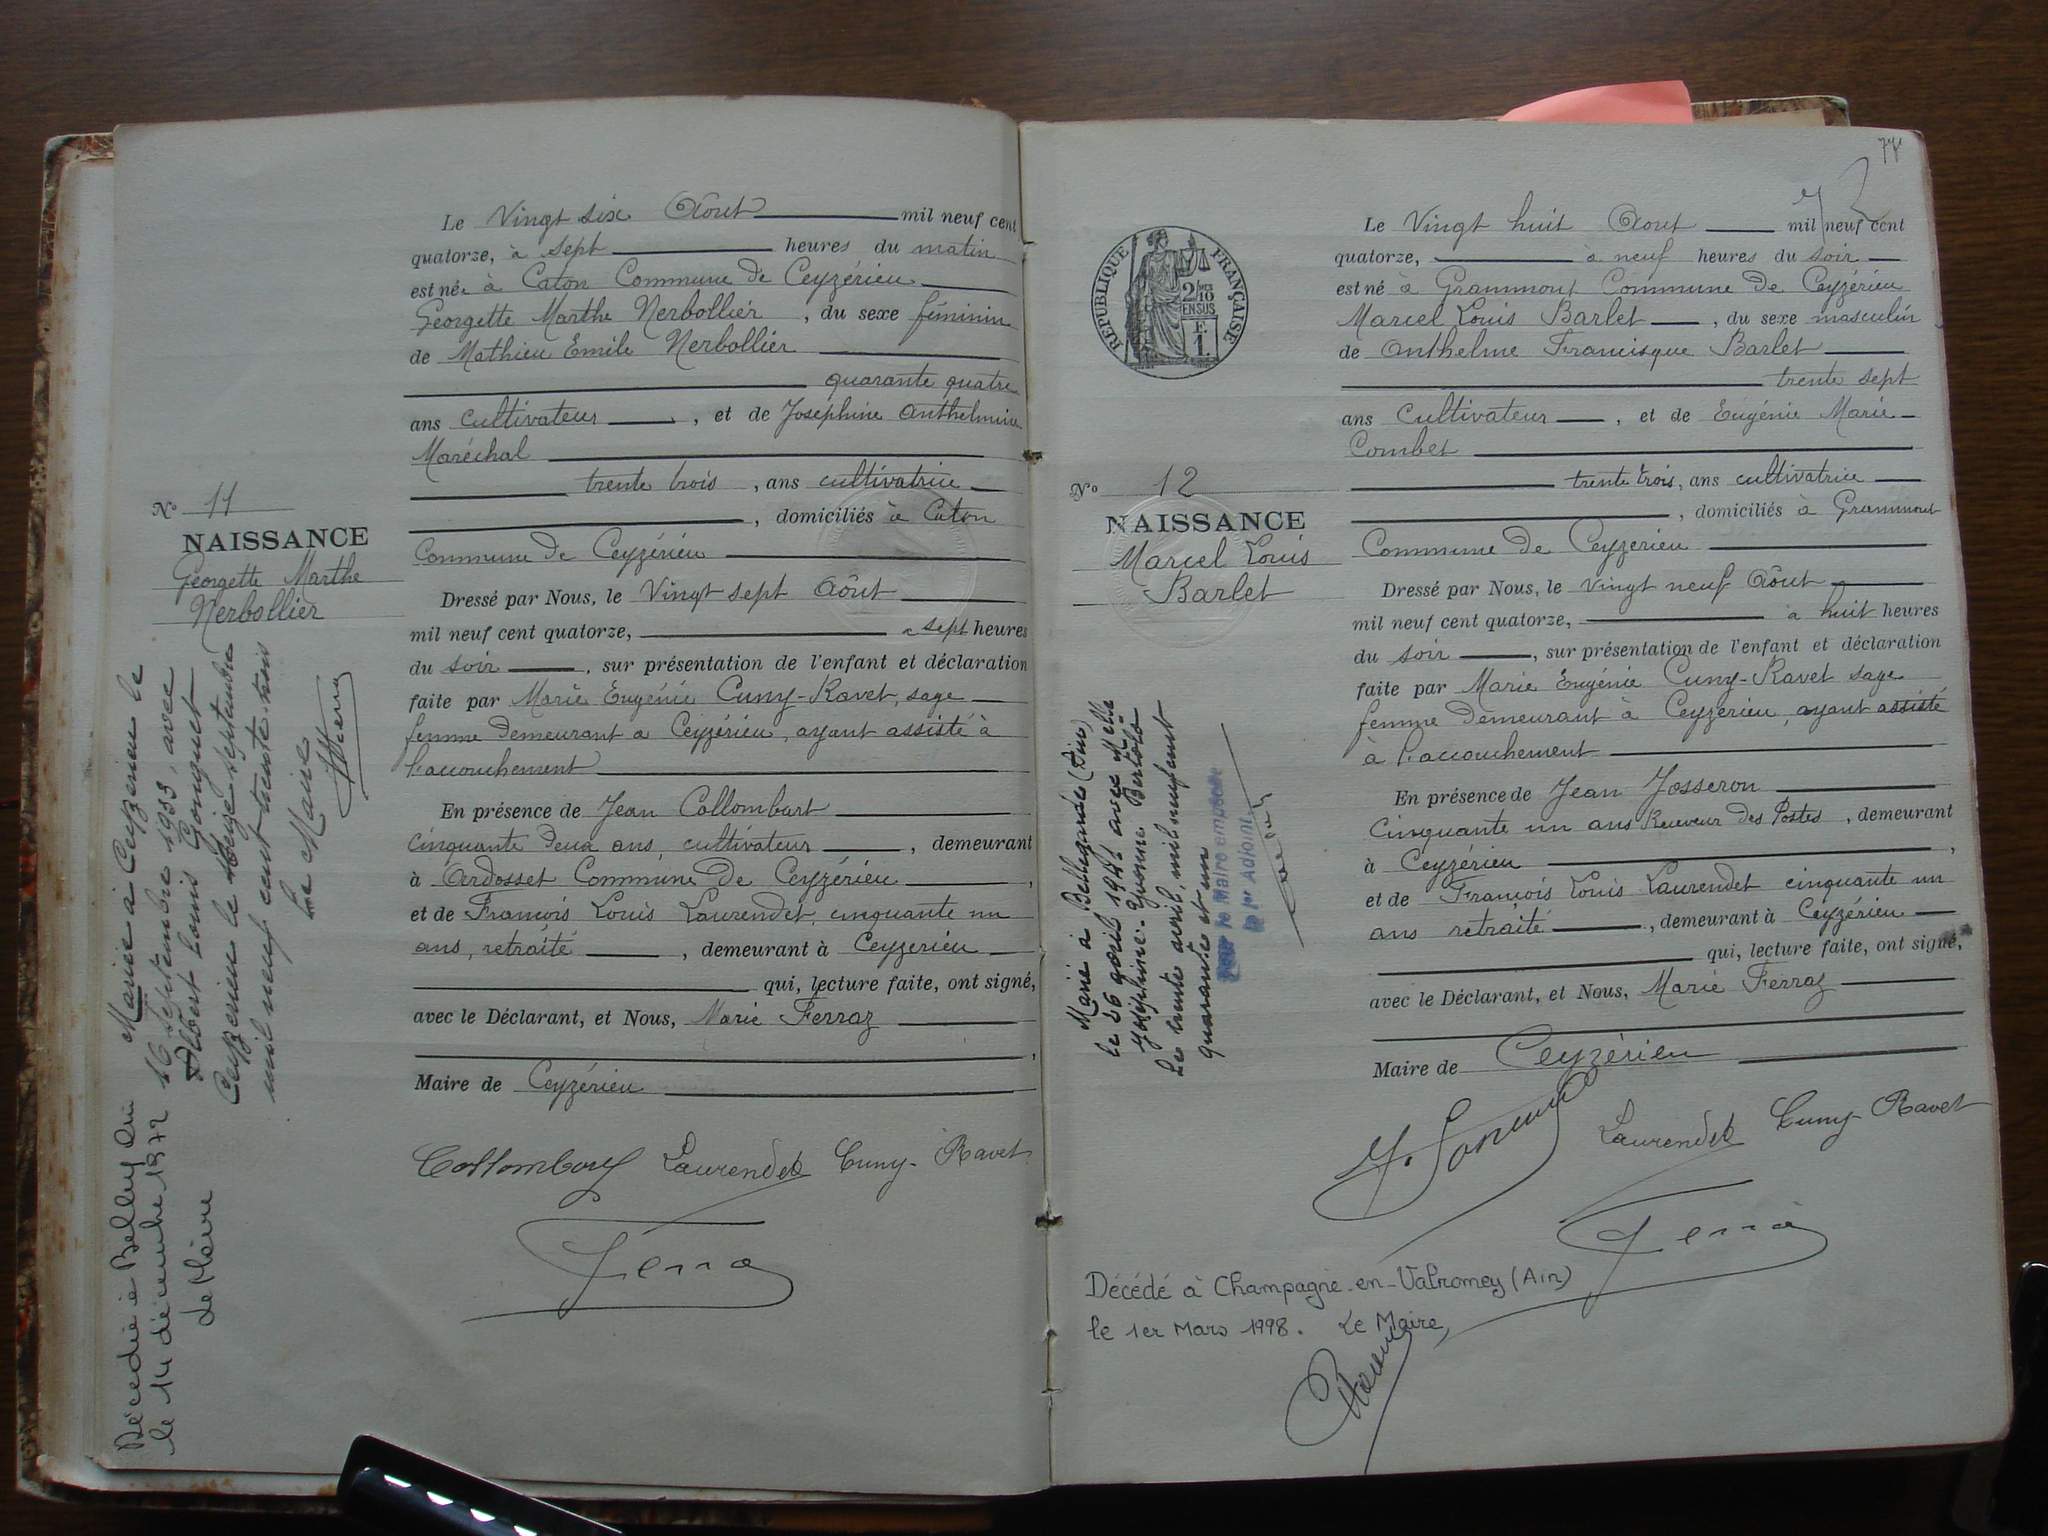 Le Vingt six Août mil neuf cent
quatorze, à sept heures du matin
est née à Caton Commune de Ceyzérieu
Georgette Marthe Nerbollier, du sexe féminin
de Mathieu Emile Nerbollier
quarante quatre
ans cultivateur, et de Joséphine Anthelmine
Maréchal
trente trois, ans cultivatrice
, domiciliés à Caton
Commune de Ceyzérieu
Dressé par Nous, le Vingt sept Août
mil neuf cent quatorze, à sept heures
du soir, sur présentation de l'enfant et déclaration
faite par Marie Eugénie Cuny-Ravet, sage
femme demeurant à Ceyzérieu, ayant assisté à
l'accouchement
En présence de Jean Collombart
cinquante deux ans, cultivateur, demeurant
à Ardosset Commune de Ceyzérieu,
et de François Louis Laurendet, cinquante un
ans, retraité, demeurant à Ceyzerieu
qui, lecture faite, ont signé,
avec le Déclarant, et Nous, Marie Ferraz
,
Maire de Ceyzérieu
Laurendet Cuny-Ravet
Ferra
N° 11
NAISSANCE
Georgette Marthe
Nerbollier
Mariée à Ceyzerieu le
16 septembre 1933, avec
Albert Louis Gonguet
Ceyzerieu le seize septembre
mil neuf cent trente trois
Le Maire
Décédée à Belley Ain
le 14 décembre 1972
Le Maire
77
Le Vingt huit Août mil neuf cent
quatorze, à neuf heures du soir
est né à Grammont Commune de Ceyzérieu
Marcel Louis Barlet, du sexe masculin
de Anthelme Francisque Barlet
trente sept
ans cultivateur, et de Eugénie Marie
Combet
trente trois, ans cultivatrice
, domiciliés à Grammont
Commune de Ceyzerieu
Dressé par Nous, le vingt neuf Août
mil neuf cent quatorze, à huit heures
du soir, sur présentation de l'enfant et déclaration
faite par Marie Eugénie Cuny-Ravet sage
femme demeurant à Ceyzerieu, ayant assisté
à l'accouchement
En présence de Jean Josseron
cinquante un ans Receveur des Postes, demeurant
à Ceyzérieu,
et de François Louis Laurendet cinquante un
ans retraité, demeurant à Ceyzérieu
qui, lecture faite, ont signé,
avec le Déclarant, et Nous, Marie Ferraz
Maire de Ceyzérieu
Laurendet Cuny-Ravet
Ferra
REPUBLIQUE FRANÇAISE
2/10
EN SUS
F.
1.
N° 12
NAISSANCE
Marcel Louis
Barlet
Marié à Bellegarde (Ain)
le 26 avril 1941 avec Melle
Joséphine Yvonne
Le trente avril, mil neuf cent
quarante et un
Pour le Maire empêché
le 1er Adjoint
Décédé à Champagne-en-Valromey (Ain)
le 1er Mars 1998. Le Maire,